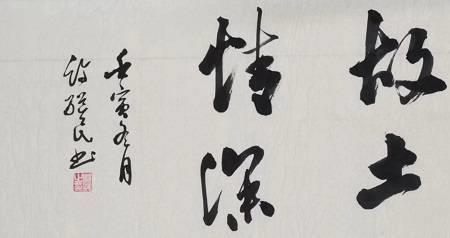 故土
情深
壬寅冬月
民书